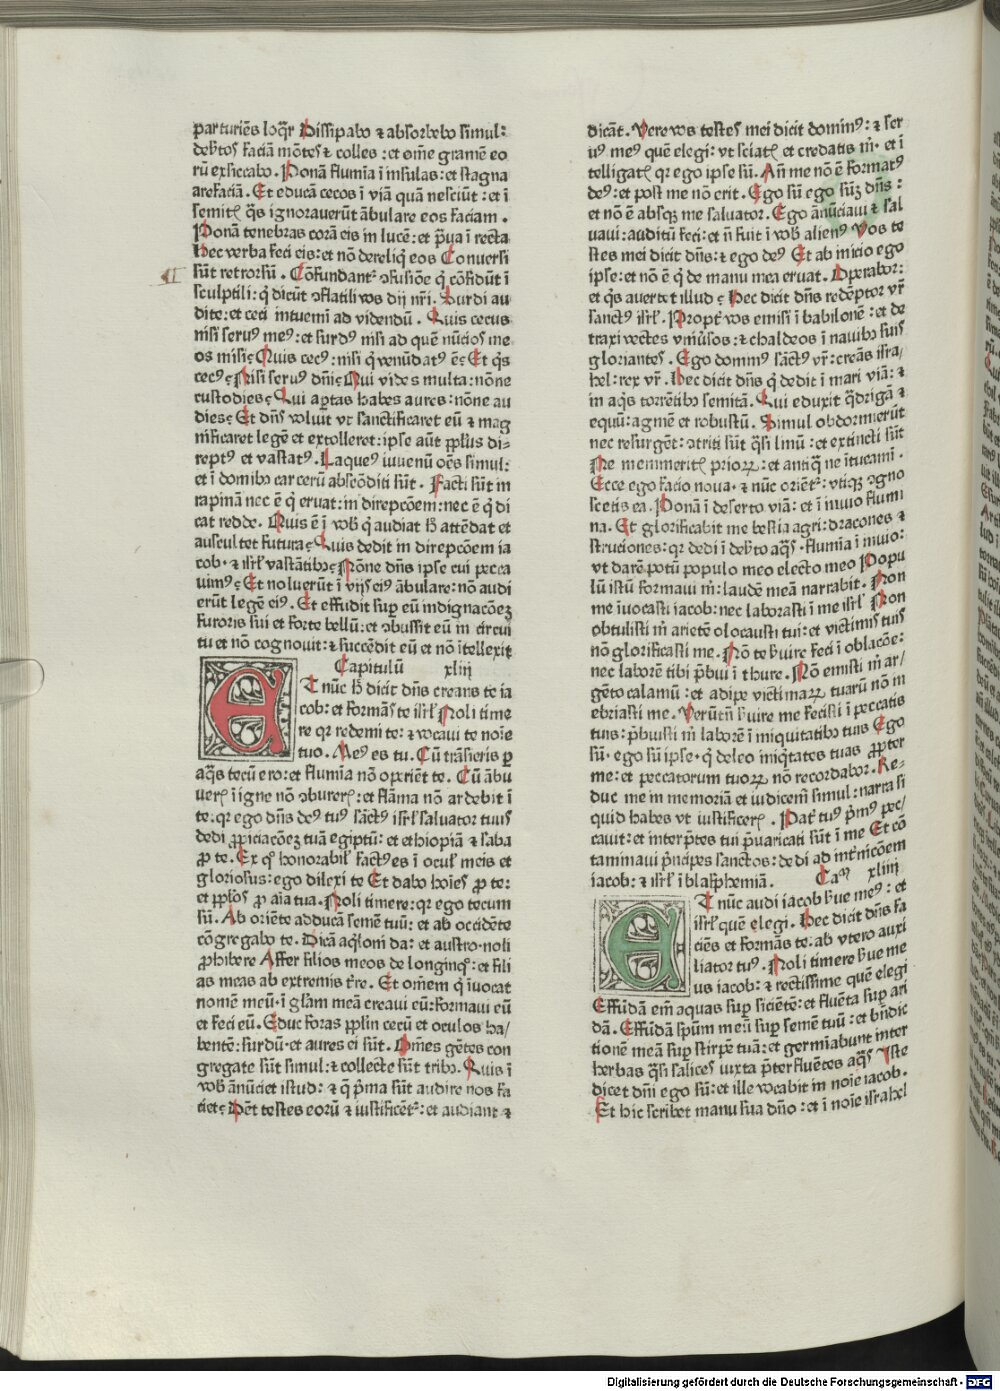 parturiēs loq̄r Dissipabo ⁊ absorbebo simul:
deb̄tos faciā mōtes ⁊ colles : et om̄e gramē eo
rū exsiccabo . Ponā flumīa ī insulas : et stagna
arefaciā . Et educā cecos ī viā quā nesciūt : et ī
semitꝭ q̄s ignorauerūt ābulare eos faciam .
Ponā tenebras corā eis in lucē : et p̄ua ī recta
Hec verba feci eis : et nō dereliq̄ eos Conuersi
sūt retrorsū . Cōfundantꝰ ꝯfusiōe q̇ cōfidūt ī
sculptili : q̇ dicūt ꝯflatili vos dij nr̄i . Surdi au
dite : et ceci intuemī ad videndū . Quis cecus
nisi seruꝰ meꝰ : et surdꝰ nisi ad quē nūcios me
os misi ꝭ Quis cecꝰ : nisi q̇ venūdatꝰ ē ꝭ Et q̇s
cecꝰ ꝭ Nisi seruꝰ dn̄i ꝭ Qui vides multa : nōne
custodies ꝭ Qui ap̄tas habes aures : nōne au
dies ꝭ Et dn̄s voluit vt sanctificaret eū ⁊ mag
nificaret legē et extolleret : ipse aūt pp̄lus di-
reptꝰ et vastatꝰ . Laqueꝰ iuuenū oēs simul :
et ī domibꝰ carcerū absēoditi sūt . Facti sūt in
rapinā nec ē q̇ eruat : in direpcōem : nec ē q̇ di
cat redde . Quis ē ī vob̄ q̇ audiat h̄ attēdat et
auscultet futura ꝭ Quis dedit in direpcōem ia
cob · ⁊ isrl̄ vastātibꝰ ꝭ Nōne dn̄s ipse cui pecca
uimꝰ ꝭ Et noluerūt ī vijs eiꝰ ābulare : nō audi
erūt legē eiꝰ . Et effudit sup̄ eū indignacōeꝫ
furoris sui et forte bellū : et ꝯbussit eū in circui
tu et nō cognouit : ⁊ succēdit eū et nō ītellexit
Capitulū xliij
ET nūc h̄ dicit dn̄s creans te ia
cob : et formās te isrl̄ Noli time
re qꝛ redemi te : ⁊ vocaui te noīe
tuo . Meꝰ es tu . Cū trāsieris p̄
aq̄s tecū ero : et flumīa nō operiēt te . Cū ābu
uerꝭ ī igne nō ꝯburerꝭ : et flāma nō ardebit ī
te : qꝛ ego dn̄s deꝰ tuꝰ sāctꝰ isrl̄ saluator tuus
dedi ꝓpiciacōeꝫ tuā egiptū : et ethiopiā ⁊ saba
ꝓ te . Ex qͦ honorabil̄ factꝰ es ī ocul̄ meis et
gloriosus : ego dilexi te Et dabo hoīes ꝓ te :
et pp̄los ꝓ aīa tua . Noli timere : qꝛ ego tecum
sū . Ab oriēte adducā semē tuū : et ab occidēte
cōgregabo te . Dicā aq̇loni da : et austro · noli
ꝓhibere Affer filios meos de longinqͦ : et fili
as meas ab extremis tr̄e . Et om̄em q̇ īuocat
nomē meū · ī gl̄am meā creaui eū : formaui eū
et feci eū . Educ foras pp̄lm cecū et oculos ha/
bentē : surdū · et aures ei sūt . Om̄es gētes con
gregate sūt simul : ⁊ collecte sūt tribꝰ . Quis ī
vob̄ ānūciet istud : ⁊ q̄ p̄ma sūt audire nos fa
ciet ꝭ Dēt testes eorū ⁊ iustificētꝰ : et audiant ⁊
dicāt . Vere vos testes mei dicit dominꝰ : ⁊ ser
uꝰ meꝰ quē elegi : vt sciatꝭ et credatis m̄ · et ī
telligatꝭ qꝛ ego ipse sū . An̄ me nō ē formatꝰ
deꝰ : et post me nō erit . Ego sū ego sūꝫ dn̄s :
et nō ē absqꝫ me saluator . Ego ānūciaui ⁊ sal
uaui : auditū feci : et n̄ fuit ī vob̄ alienꝰ Vos te
stes mei dicit dn̄s : ⁊ ego deꝰ Et ab inicio ego
ipse : et nō ē q̇ de manu mea eruat . Operabor :
et q̇s auertet illud ꝭ Hec dicit dn̄s redēptor vr̄
sanctꝰ isrl̄ . Propt̄ vos emisi ī babilonē : et de
traxi vectes vniūsos : ⁊ chaldeos ī nauibꝰ suis
gloriantes . Ego dominꝰ sāctꝰ vr̄ : creās isra/
hel : rex vr̄ . Hec dicit dn̄s q̇ dedit ī mari viā : ⁊
in aq̇s torrētibꝰ semitā . Qui eduxit q̇drigā ⁊
equū : agmē et robustū . Simul obdormierūt
nec resurgēt : ꝯtriti sūt q̇si linū : et extincti sūt
Ne meminerītꝭ prioꝝ : et antiq̄ ne ītueamī .
Ecce ego facio noua · ⁊ nūc oriētꝰ : vtiqꝫ ꝯgno
scetis ea . Ponā ī deserto viā : et ī inuio flumi
na . Et glorificabit me bestia agri : dracones ⁊
struciones : qꝛ dedi ī deb̄to aq̄s · flumīa ī inuio :
vt darē potū populo meo electo meo Popu
lū istū formaui m̄ : laudē meā narrabit . Non
me īuocasti iacob : nec laborasti ī me isrl̄ Non
obtulisti m̄ arietē olocausti tui : et victimis tuis
nō glorificasti me . Nō te b̄uire feci ī oblacōe :
nec laborē tibi p̄bui ī thure . Nō emisti m̄ ar/
gēto calamū : et adipe victimaꝝ tuarū nō in
ebriasti me . Verūtn̄ b̄uire me fecisti ī peccatis
tuis : p̄buisti m̄ laborē ī iniquitatibꝰ tuis Ego
sū · ego sū ipse · q̇ deleo iniq̇tates tuas ꝓpter
me : et peccatorum tuoꝝ nō recordabor . Re-
duc me in memoriā et iudicem̄ simul : narra si
quid habes vt iustificerꝭ . Pat̄ tuꝰ p̄mꝰ pec/
cauit : et interp̄tes tui p̄uaricati sūt ī me Et cō
taminaui p̄ncipes sanctos : dedi ad int̄nicōem
iacob : ⁊ isrl̄ ī blasphemiā . Caᵐ xliiij
ET nūc audi iacob b̄ue meꝰ : et
isrl̄ quē elegi . Hec dicit dn̄s fa
ciēs et formās te : ab vtero auxi
liator tuꝰ . Noli timere b̄ue me
us iacob : ⁊ rectissime quē elegi
Effūdā em̄ aquas sup̄ siciētē : et fluēta sup̄ ari
dā . Effūdā sp̄um meū sup̄ semē tuū : et bn̄dic
tionē meā sup̄ stirpē tuā : et germīabunt inter
herbas q̇si salices iuxta p̄ter fluētes aq̄s Iste
dicet dn̄i ego sū : et ille vocabit in noīe iacob .
Et hic scribet manu sua dn̄o : et ī noīe israhel
Digitalisierung gefördert durch die Deutsche Forschungsgemeinschaft - DFG